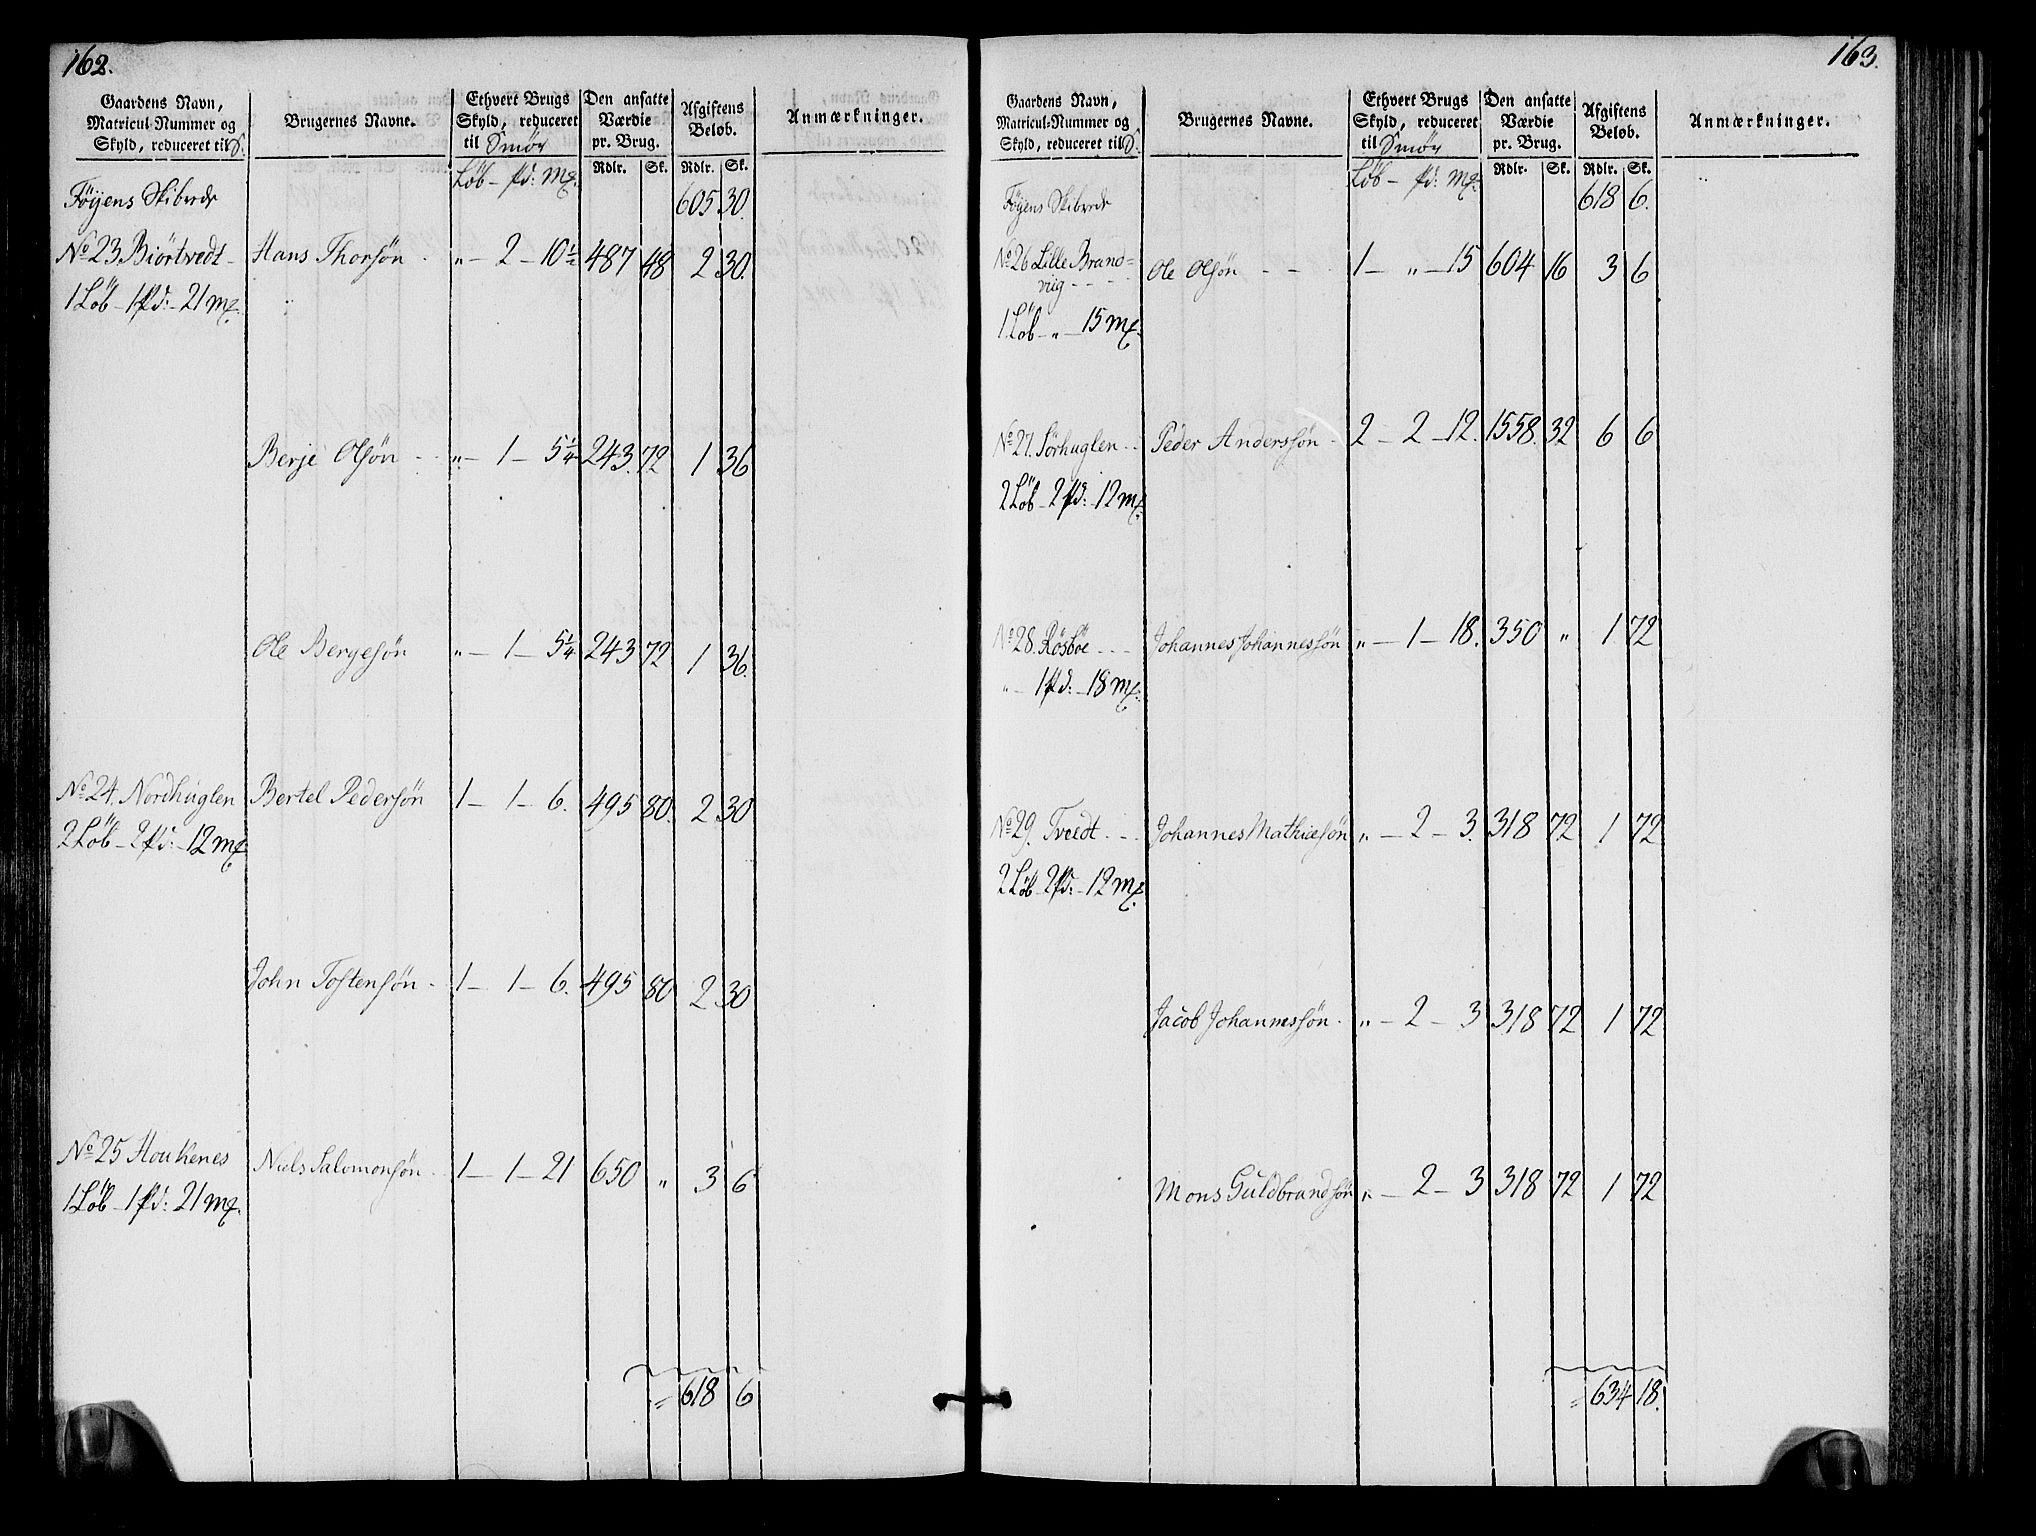 162.
Gaardens Navn, Matricul-Nummer og Skyld, reduceret til S. | Brugernes Navne. | Ethvert Brugs Skyld, reduceret til Smör | Den ansatte Værdie pr. Brug. | Afgiftens Beløb. | Anmærkninger.
Löb - pd: mf. | Rdlr. | Sk. | Rdlr. | Sk.
Föyens Skibrede | 605 | 30.
No 23 Biörtvedt - | Hans Thorsön - | „ - 2 - 10½ | 487 | 48 | 2 | 30.
1 Löb - 1 pd: - 21 mf.
Berje Olsön - | „ - 1 - 5¼ | 243. | 72 | 1 | 36
Ole Bergesön | „ - 1 - 5¼ | 243 | 72 | 1 | 36.
No 24. Nordhuglen | Bertel Pedersön | 1 - 1 - 6. | 495 | 80. | 2 | 30
2 Löb - 2 pd: - 12 mf.
John Tostensön - | 1 - 1 - 6. | 495 | 80 | 2 | 30
No 25 Houkenes | Niels Salomonsön - | 1 - 1 - 21 | 650 | „ | 3 | 6
1 Löb - 1 pd: 21 mf.
618 | 6
163.
Gaardens Navn, Matricul-Nummer og Skyld, reduceret til S. | Brugernes Navne. | Ethvert Brugs Skyld, reduceret til Smör | Den ansatte Værdie pr. Brug. | Afgiftens Beløb. | Anmærkninger.
Löb - pd: mf. | Rdlr. | Sk. | Rdlr. | Sk.
Föyens Skibrede | 618 | 6.
No 26 Lille Brand= | Ole Olsön - - | 1 - „ - 15 | 604 | 16 | 3 | 6
viig - - - -
1 Löb - „ - 15 mf.
No 27. Sörhuglen - - | Peder Anderssön - | 2 - 2 - 12. | 1558. | 32 | 6 | 6
2 Löb - 2 pd: - 12 mf.
No 28. Rösböe - - - | Johannes Johannessön | „ - 1 - 18. | 350 | „ | 1 | 72
„ - 1 pd: - 18 mf.
No 29. Tvedt - - - | Johannes Mathiesön | „ - 2 - 3. | 318 | 72 | 1 | 72
2 Löb - 2 pd: - 12 mf.
Jacob Johannessön - | „ - 2 - 3 | 318 | 72 | 1 | 72
Mons Guldbrandsön | „ - 2 - 3 | 318 | 72 | 1 | 72
634 | 18.